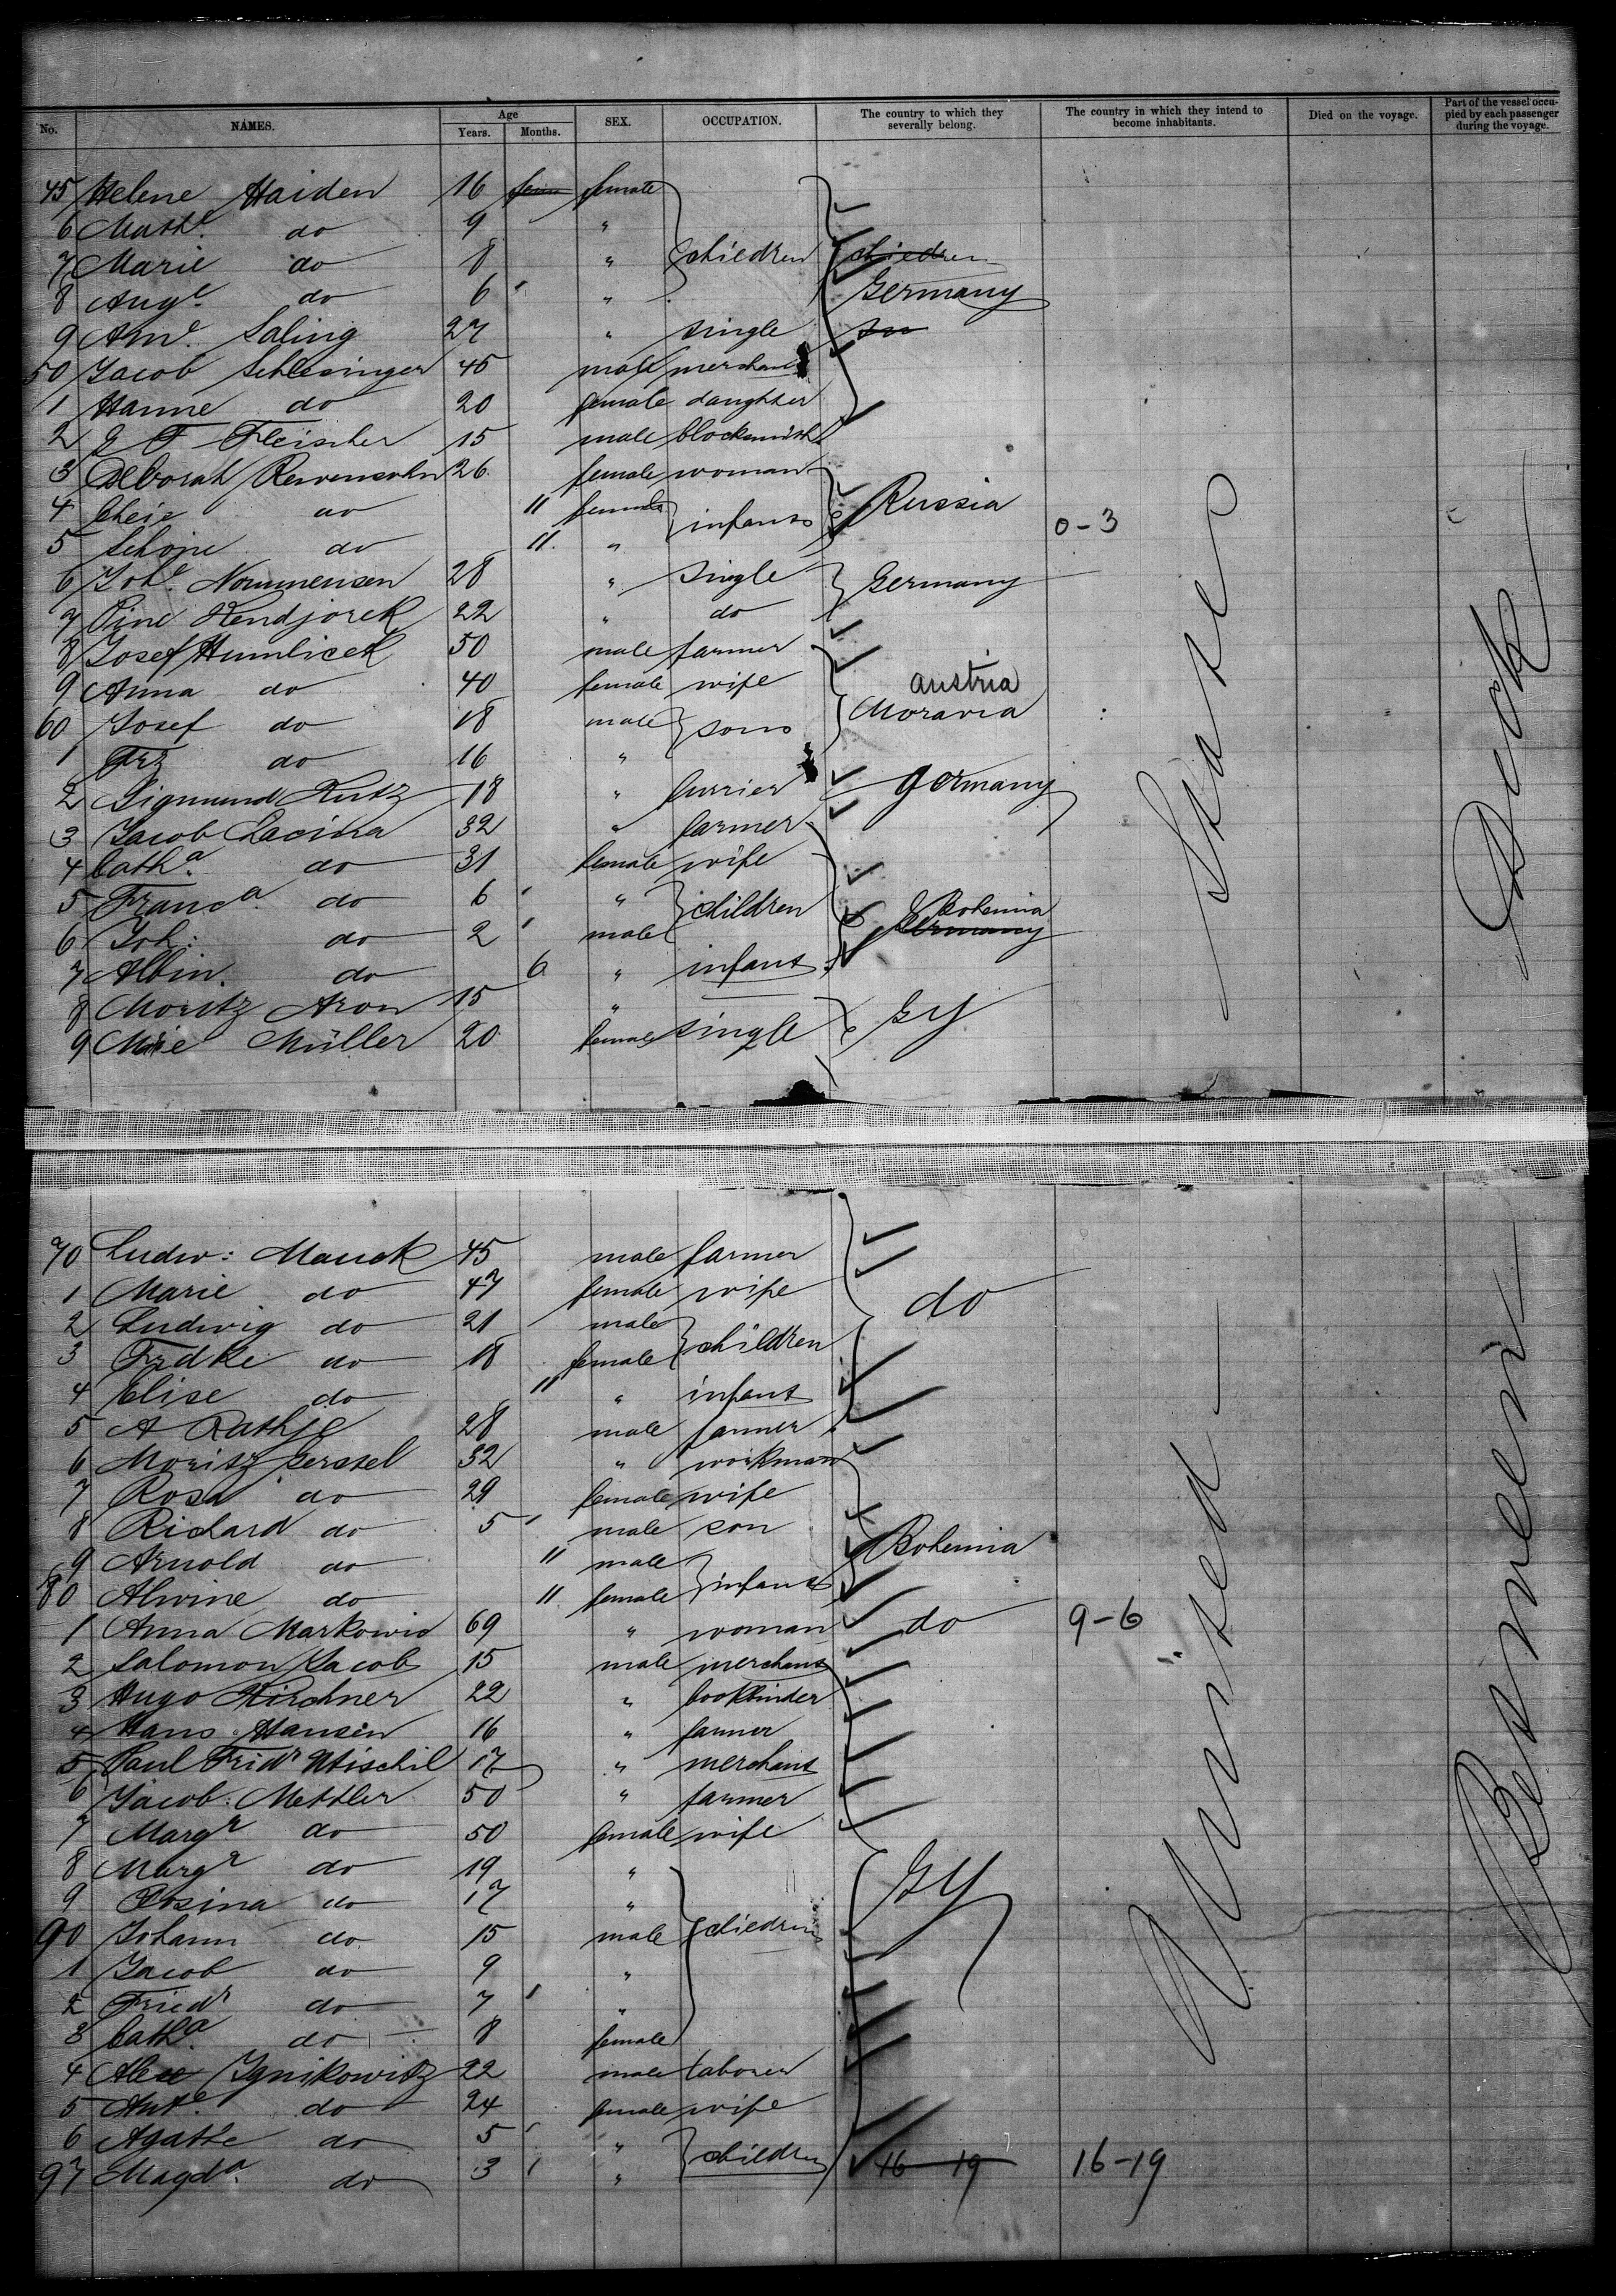 No. NAMES. Age Years. Months. SEX. OCCUPATION. The country to which they severally belong. The country in which they intend to become inhabitants. Died on the voyage. Part of the vessel occupied by each passenger during the voyage.
45 Helene Haiden 16 female
6 Mathe. do 9 "
7 Marie do 8 " children children
8 Auge. do 6 " Germany
9 Ame. Saling 27 " single
50 Jacob Schlesinger 45 male merchant
1 Hanne do 20 female daughter
2 G F Fleischer 15 male blocksmith
3 Deborah 26 female woman
4 do 11 female infants Russia 0-3
5 do 11. "
6 Johe. Nommensen 28 " single Germany
7 Pine Kendjorek 22 " do
8 Josef Humlicek 50 male farmer
9 Anna do 40 female wife austria
60 Josef do 18 male sons Moravia
1 Frz do 16 "
2 Sigmund Kutz 18 " furrier germany
3 Jacob Lacina 32 " farmer
4 Catha. do 31 female wife
5 Franca. do 6 " children Bohemia
6 Joh: do 2 male Germany
7 Albin. do 6 " infant
8 Moritz Aron 15 "
9 Marie Müller 20 female single Gy
70 Ludw: Mauck 45 male farmer
1 Marie do 47 female wife do
2 Ludwig do 21 male children
3 Frdke do 18 female
4 Elise do 11 " infant
5 A Rathje 28 male farmer
6 Moritz 32 " workman
7 Rosa do 29 female wife
8 Richard do 5 male son
9 Arnold do 11 male infants Bohemia
80 Alwine do 11 female
1 Anna Markowic 69 " woman do 9-6
2 Salomon Jacob 15 male merchant
3 Hugo Kirchner 22 " bookbinder
4 Hans Hansen 16 " farmer
5 Paul Fridr 17 " merchant
6 Jacob: Mettler 50 " farmer
7 Margr do 50 female wife
8 Margr do 19 " Gy
9 Rosina do 17 "
90 Johann do 15 male children
1 Jacob do 9 "
2 Friedr do 7 "
3 Catha. do 8 female
4 Alex Ignikowitz 22 male laborer
5 Ante. do 24 female wife
6 Agathe do 5 " children
97 Magda. do 3 " 16 19 16-19
United States
Between Deck